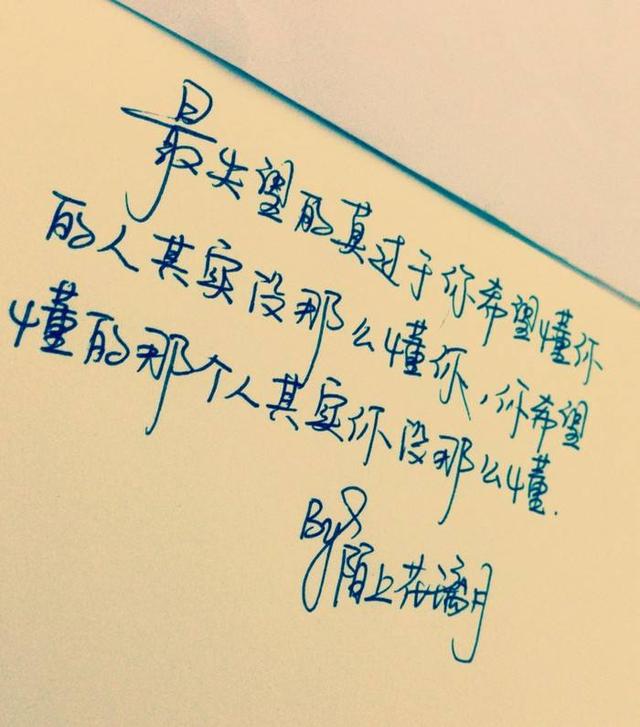 最失望的莫过于你希望懂你
的人其实没那么懂你,你希望
懂的那个人其实你没那么懂.
By 陌上花璃月